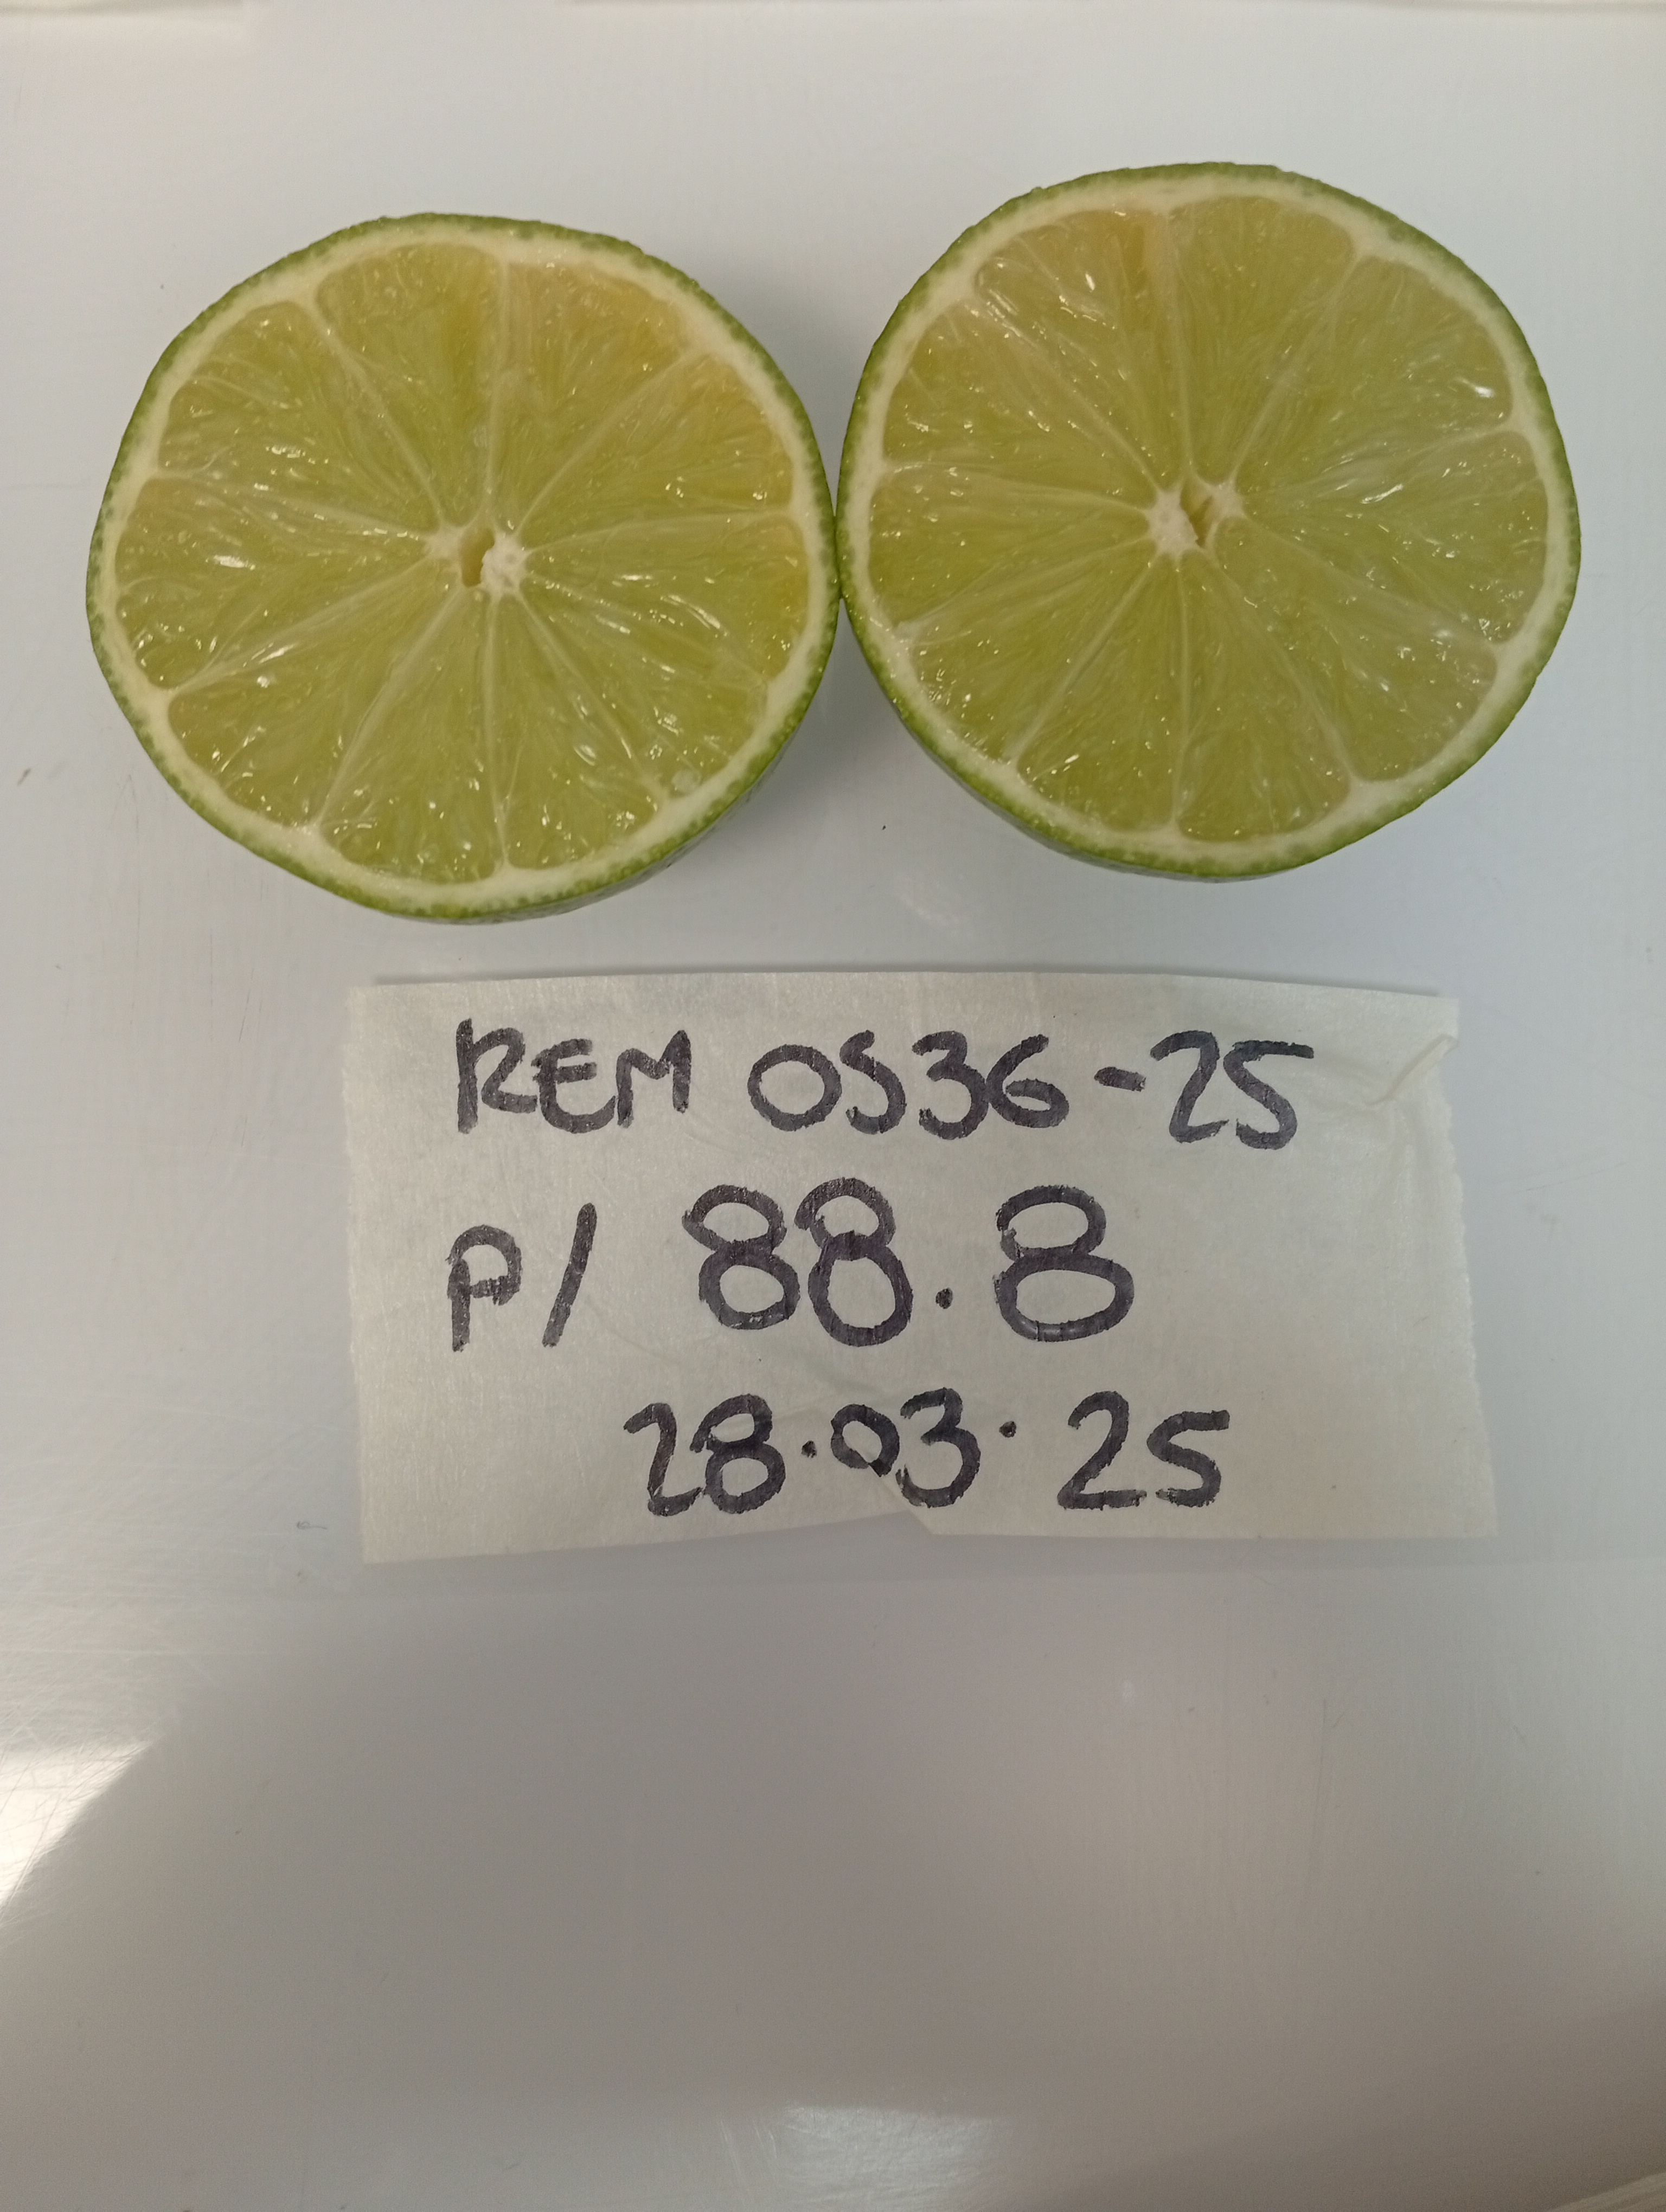 REM 0536-25
P/ 88.8
28.03.25